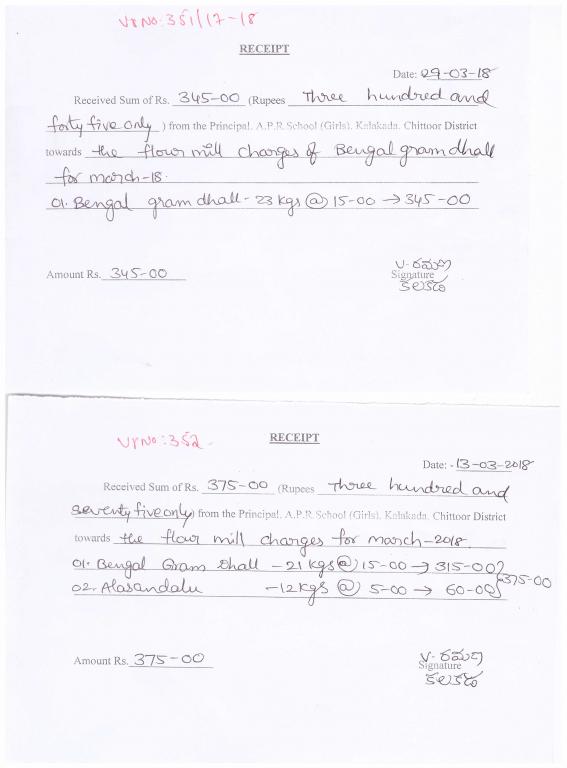 Vr No: 351/17-18
RECEIPT
Date: 29-03-18
Received Sum of Rs. 345-00 (Rupees Three hundred and
forty five only ) from the Principal. A.P.R.School (Girls). Kalakada. Chittoor District
towards the flour mill charges of Bengal gram dhall
for march-18.
01. Bengal gram dhall - 23 kgs @ 15-00 → 345-00
Amount Rs. 345-00
V- రమణ
Signature
కలకడ
Vr No: 352
RECEIPT
Date: -13-03-2018
Received Sum of Rs. 375-00 (Rupees Three hundred and
seventy five only) from the Principal. A.P.R.School (Girls). Kalakada. Chittoor District
towards the flour mill charges for march-2018.
01. Bengal Gram Dhall - 21 kgs @ 15-00 → 315-00
375-00
02. Alasandalu - 12 kgs @ 5-00 → 60-00
Amount Rs. 375-00
V- రమణ
Signature
కలకడ